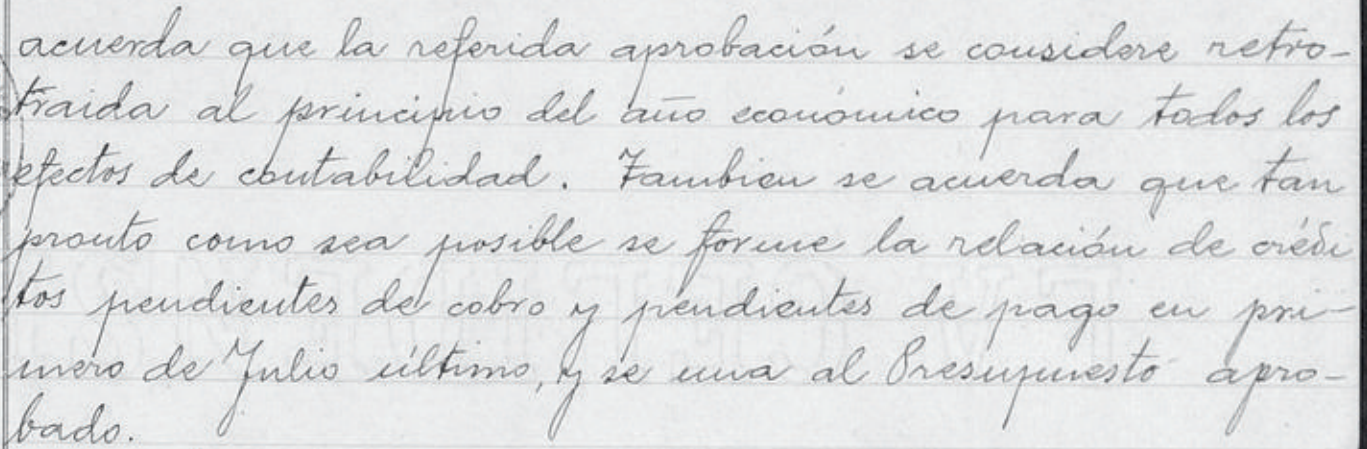 acuerda que la referida aprobación se considere retro-
traida al principio del año económico para todos los
efectos de contabilidad. Tambien se acuerda que tan
pronto como sea posible se forme la relación de crédi
tos pendientes de cobro y pendientes de pago en pri-
mero de Julio último, y se una al Presupuesto apro-
bado.